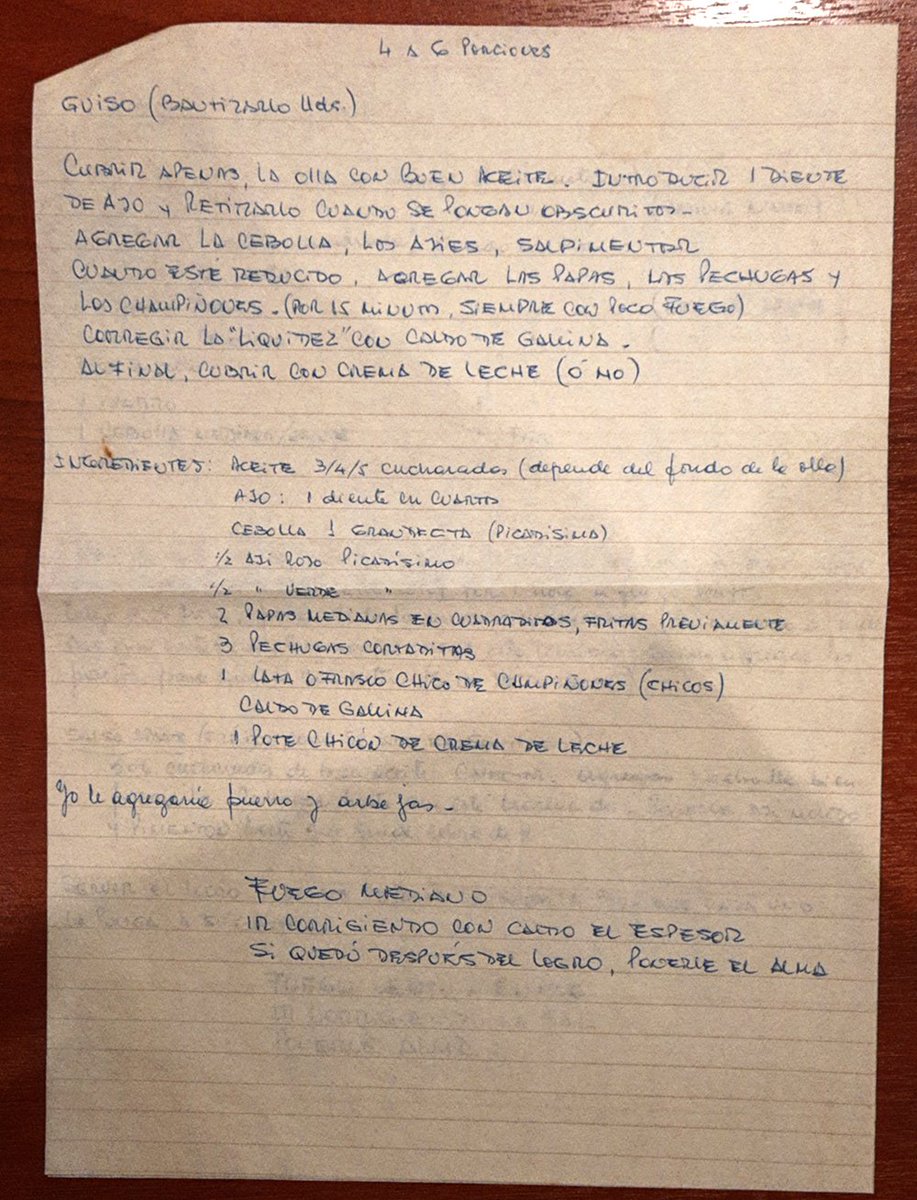 4 A 6 PORCIONES
GUISO (BAUTIZARLO Uds.)
CUBRIR APENAS, LA OLLA CON BUEN ACEITE. INTRODUCIR 1 DIENTE
DE AJO Y RETIRARLO CUANDO SE PONGAN OBSCURITOS-
AGREGAR LA CEBOLLA, LOS AJIES, SALPIMENTAR
CUANDO ESTÉ REDUCIDO, AGREGAR LAS PAPAS, LAS PECHUGAS Y
LOS CHAMPIÑONES. (POR 15 MINUTOS, SIEMPRE CON POCO FUEGO)
CORREGIR LA "LIQUIDEZ" CON CALDO DE GALLINA.
AL FINAL, CUBRIR CON CREMA DE LECHE (Ó NO)
INGREDIENTES: ACEITE 3/4/5 cucharadas (depende del fondo de la olla)
AJO: 1 diente en CUARTOS
CEBOLLA 1 GRANDECTA (PICADÍSIMA)
1/2 AJI ROJO PICADÍSIMO
1/2 " VERDE "
2 PAPAS MEDIANAS EN CUADRADITOS, FRITAS PREVIAMENTE
3 PECHUGAS CORTADITAS
1 LATA O FRASCO CHICO DE CHMPIÑONES (CHICOS)
CALDO DE GALLINA
1 POTE CHICÓN DE CREMA DE LECHE
Yo le agregaría puerro y arbejas-
FUEGO MEDIANO
IR CORRIGIENDO CON CALDO EL ESPESOR
SI QUEDÓ DESPUÉS DEL LOGRO, PONERLE EL ALMA